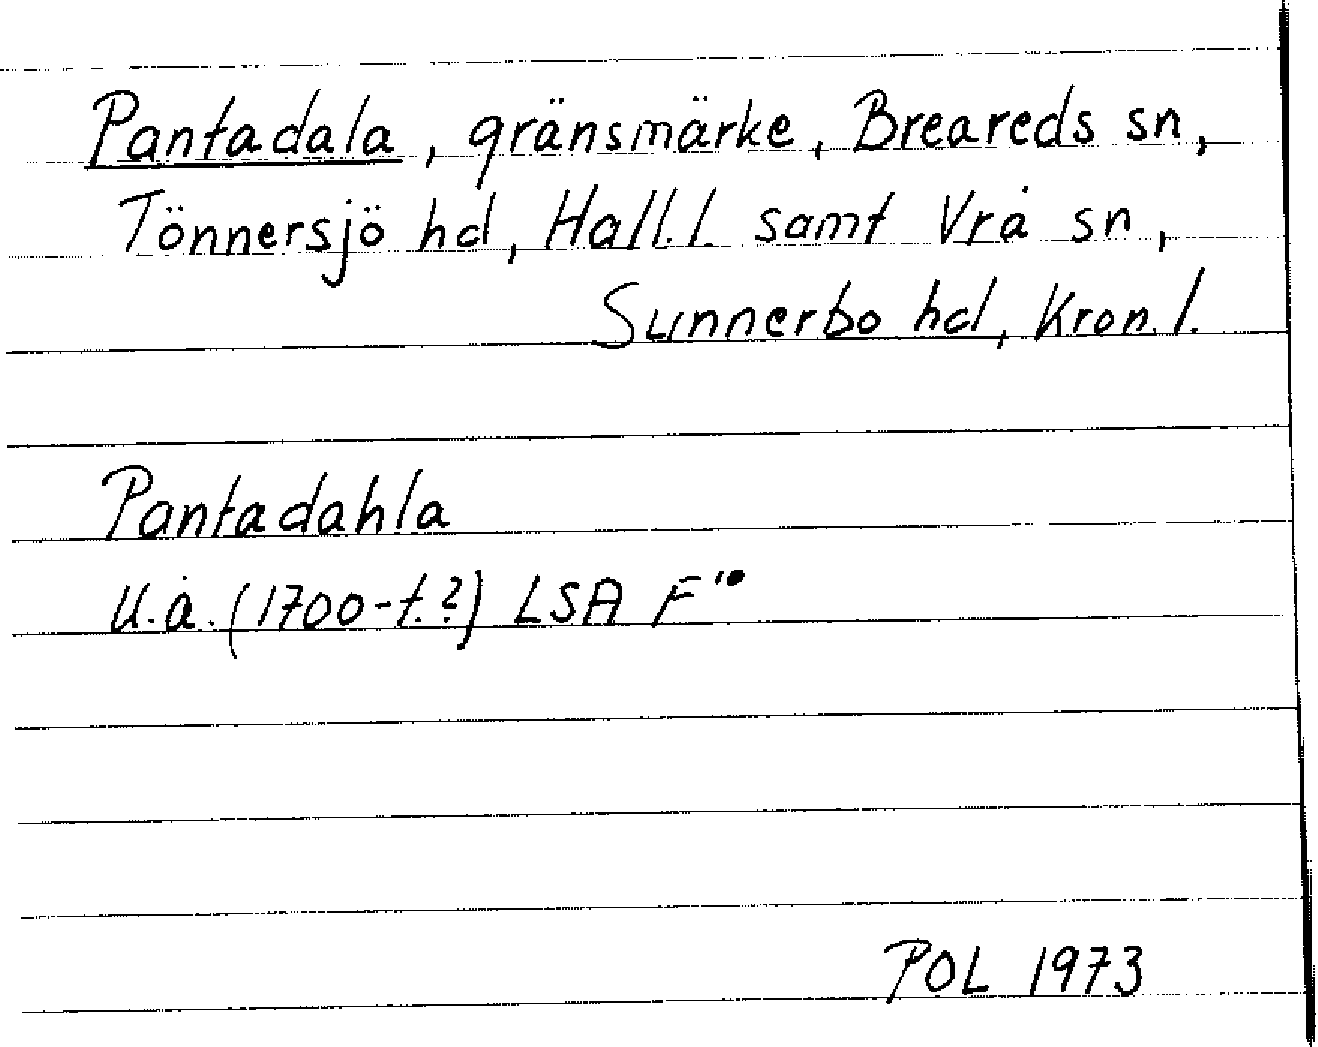 Pantadala, gränsmärke, Breareds sn,
Tönnersjö hd, Hall.l. samt Vrå sn,
Sunnerbo hd, Kron.l.
Pantadahla
u.å. (1700-t.?) LSA F¹⁰
POL 1973